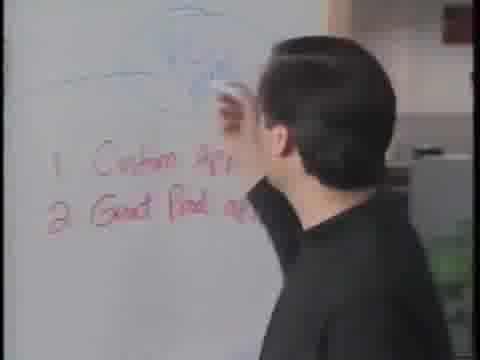 1 Custom App
2 Great Prod ap